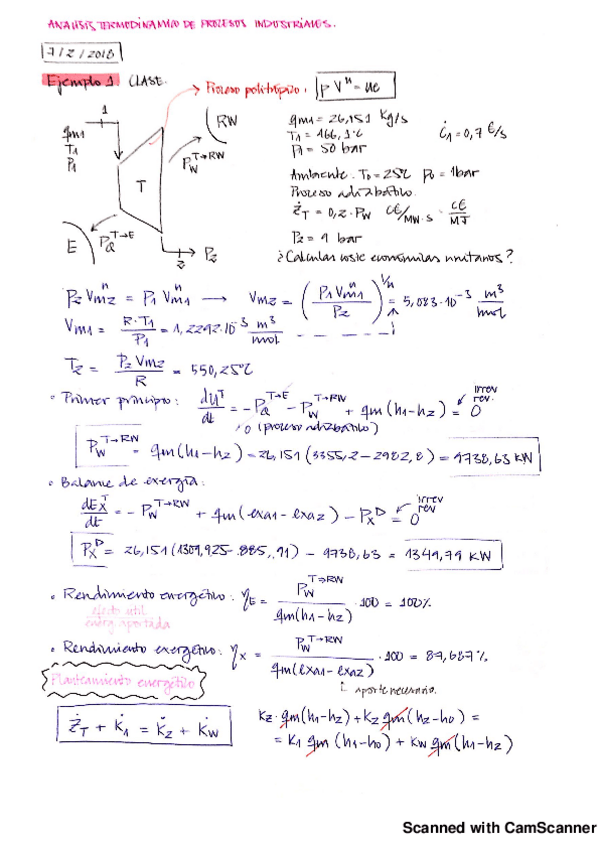 ANALISIS TERMODINAMICO DE PROCESOS INDUSTRIALES.
7/2/2018
Ejemplo 1 CLASE. → Proceso politrópico: p Vⁿ = cte
1
qm1
T1
P1
T
RW
P_W^{T→RW}
E
P_Q^{T→E}
2
P2
qm1 = 26,151 Kg/s
T1 = 466,1ºC   Ċ1 = 0,7 €/s
P1 = 50 bar
Ambiente: T0 = 25ºC p0 = 1bar
Proceso adiabático.
Ż_T = 0,2 · P_W c€/MW·s = c€/MJ
P2 = 9 bar
¿Calcular coste económicos unitarios?
P2 Vm2ⁿ = P1 Vm1ⁿ → Vm2 = (P1 Vm1ⁿ / P2)^{1/n} = 5,083·10⁻³ m³/mol
Vm1 = R·T1 / P1 = 1,2292·10⁻³ m³/mol
T2 = P2 Vm2 / R = 550,25ºC
• Primer principio: dU^T/dt = -P_Q^{T→E} - P_W^{T→RW} + qm(h1-h2) = 0
irrev
rev.
0 (proceso adiabático)
P_W^{T→RW} = qm(h1-h2) = 26,151 (3355,2 - 2982,8) = 9738,63 KW
• Balance de exergía:
dEx^T/dt = -P_W^{T→RW} + qm(exa1 - exa2) - P_X^D = 0
irrev
rev
P_X^D = 26,151 (1309,925 - 885,91) - 9738,63 = 1349,79 KW
• Rendimiento energético: η_E = P_W^{T→RW} / qm(h1-h2) · 100 = 100%
efecto útil
energ aportada
• Rendimiento exergético: η_X = P_W^{T→RW} / qm(exa1-exa2) · 100 = 87,687%
aporte necesario.
Planteamiento energético
Ż_T + K̇1 = K̇2 + K̇W
K2 · qm(h1-h2) + K2 qm(h2-h0) =
= K1 qm (h1-h0) + KW qm(h1-h2)
Scanned with CamScanner